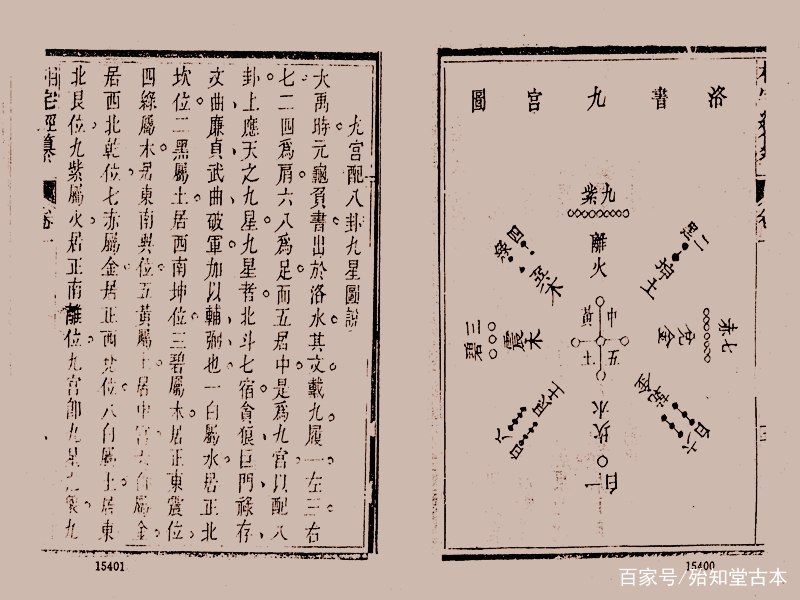 洛書九宮圖
九紫
離火
二黑
坤土
四綠
巽木
三碧
震木
七赤
兌金
中
五
黃
土
六白
乾金
八白
艮土
坎水
一白
九宮配八卦九星圖說
大禹時元龜負書出於洛水其文戴九履一左三右
七二四爲肩六八爲足而五居中是爲九宮以配八
卦上應天之九星九星者北斗七宿貪狼巨門祿存
文曲廉貞武曲破軍加以輔弼也一白屬水居正北
坎位二黑屬土居西南坤位三碧屬木居正東震位
四綠屬木居東南巽位五黃屬土居中宮六白屬金
居西北乾位七赤屬金居正西兌位八白屬土居東
北艮位九紫屬火居正南離位九宮卽九星
九
相宅經纂
卷一
15401
15400
百家号/殆知堂古本